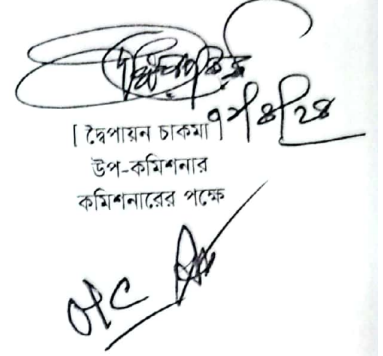 [ দ্বৈপায়ন চাকমা ]
উপ-কমিশনার
কমিশনারের পক্ষে
O/C